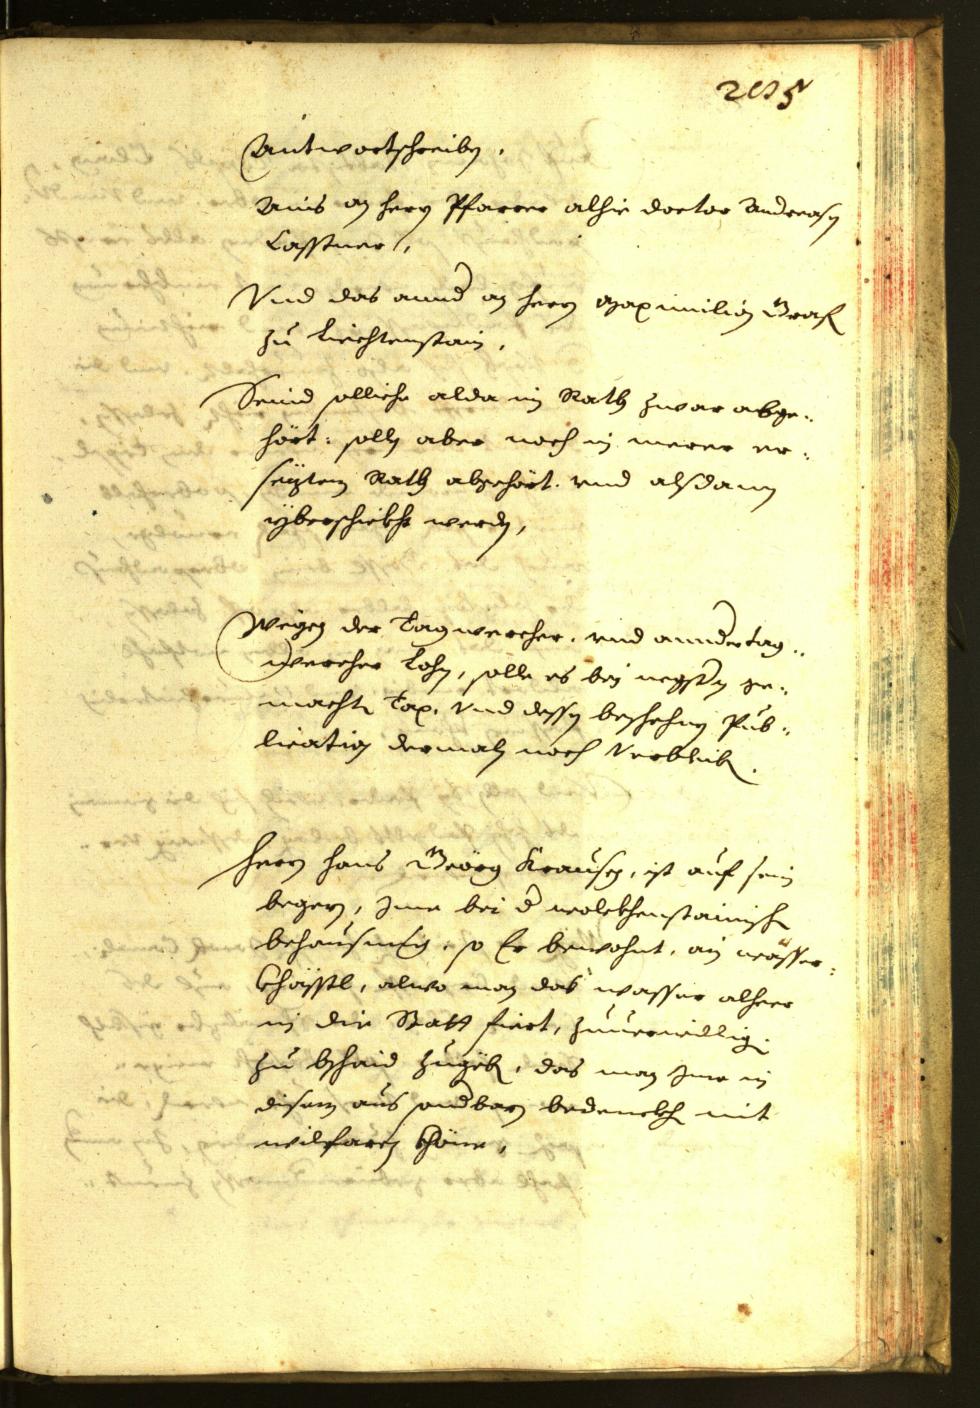 205
Antwortschreiben,
Ains an herrn Pfarrer alhie doctor Andreasen
Casstner,
Vnd das annder an herrn Maximilian Graf
zu Liechtenstain,
Seind solliche alda in Rath zwar abge-
hört: sollen aber noch in merer er-
sezten Rath abgehört. vnd alsdann
yberschickht werden,
Wegen der Tagwercher. vnd annder tag-
wercher Lohn, solle es bei negsten ge-
machten Tax. Vnd dessen beschehnen Pub-
lication dermaln noch Verbleiben.
Herrn Hans Geörg Krausen, ist auf sein
begern, Ime bei der wolckhenstainischen
behausung, so Er bewohnt, ain wasser-
Khässtl, alwo man das wasser alheer
in die Statt fiert, zuuerwilligen.
zu bschaid zugeben, das man Ime in
disem aus sondbarn bedenckhen nit
wilfaren khöne,